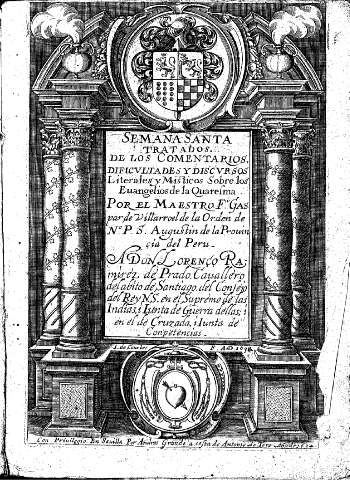 SEMANA SANTA
TRATADOS
DE LOS COMENTARIOS,
DIFICULTADES Y DISCURSOS
Literales y Misticos Sobre los
Euangelios de la Quaresma
POR EL MAESTRO Fr. GAS
par de Villarroel de la Orden de
No. P. S. Augustin de la Prouin
çia del Peru.
A DON LORENÇO RA,
mirez de Prado, Cauallero
del abito de Santiago, del Consejo
del Rey N. S. en el Supremo de las
Indias, i Iunta de Guerra dellas; i
en el de Cruzada, i Iunta de
Conpetencias.
F. AÑO
Con Priuilegio En Seuilla Por Andres Grande a costa de Antonio de Toro